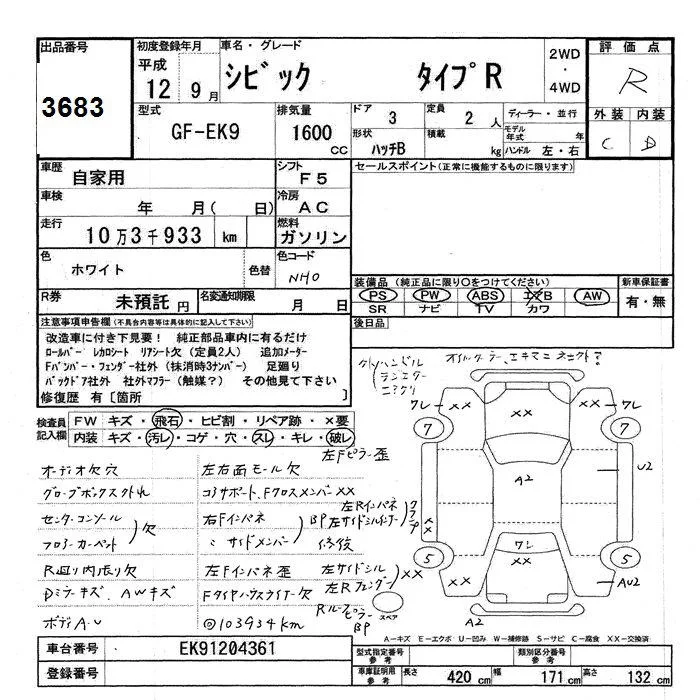 出品番号
3683
初度登録年月
平成
12 9月
車名・グレード
シビック タイプR
2WD
・
4WD
評価点
R
外装 内装
C D
型式
GF-EK9
排気量
1600
CC
ドア 3
定員 2人
ディーラー・並行
形状
ハッチB
積載 kg
モデル年式 年
ハンドル 左・右
車歴
自家用
シフト
F5
セールスポイント(正常に機能するものに限ります)
車検
年 月( 日)
冷房
AC
走行
10万3千933 km
燃料
ガソリン
色
ホワイト
色替
色コード
NHO
装備品 (純正品に限り〇をつけてください)
PS PW ABS エアB AW
SR ナビ TV カワ
新車保証書
有・無
R券
未預託 円
名変通知期限
月 日
後日品
注意事項申告欄(不具合内容等は具体的に記入して下さい)
改造車に付き下見要! 純正部品車内に有るだけ
ロールバー レカロシート リアシート欠(定員2人) 追加メーター
Fバンパー・フェンダー社外(抹消時3ナンバー) 足廻り
バックドア社外 社外マフラー(触媒?) その他見て下さい
修復歴 有〔箇所 〕
検査員
記入欄
FW キズ・飛石・ヒビ割・リペア跡・×要
内装 キズ・汚レ・コゲ・穴・スレ・キレ・破レ
外ハンドル
オイルクーラー、エキマニ
オーディオ欠穴
グローブボックス外れ
センターコンソール
フロアーカーペット
欠
R廻り内張り欠
Dミラーキズ、AWキズ
ボディA・U
左右面モール欠
左Fピラー歪
コアサポート、Fクロスメンバー××
右Fインパネ
〃 サイドメンバー
BP
修復
左Fインパネ歪
Fタイヤハウスライナー欠
◎103934km
左Rインパネ
左サイドシルインナー
左サイドシル
左Rフェンダー
××
Rルーフピラー
BP
ワレ ×× ×× ×× ワレ
7 7
A2
U2
××
ワレ
5 5
×× ××
AU2
A2
スペア
A-キズ E-エクボ U-凹み W-補修跡 S-サビ C-腐食 XX-交換済
車台番号
EK91204361
登録番号
型式指定番号
参考
類別区分番号
参考
車庫証明用
参考
長さ 420 cm
幅 171 cm
高さ 132 cm